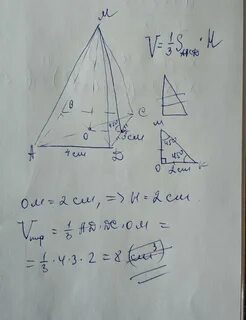 M
V = 1/3 S_ABCD · H
B
C
O
45°
3 см
A
4 см
D
M
45°
45°
O
2 см
OM = 2 см, => H = 2 см
V_пир = 1/3 AD · DC · OM =
= 1/3 · 4 · 3 · 2 = 8 (см³)